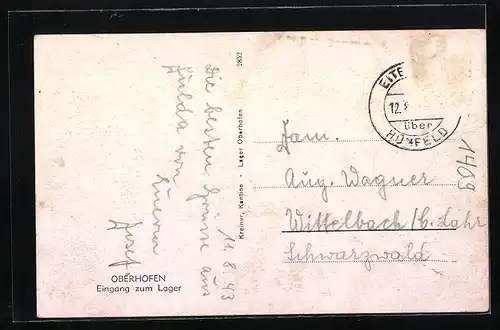 11.8.43
Die besten Grüsse aus
Fulda von
Eurem
Josef
OBERHOFEN
Eingang zum Lager
Kreiner, Kantine - Lager Oberhofen
2852
EITE
12.
über
HÜNFELD
Fam.
Aug. Wagner
Wittelbach/b. Lahr
Schwarzwald
1409